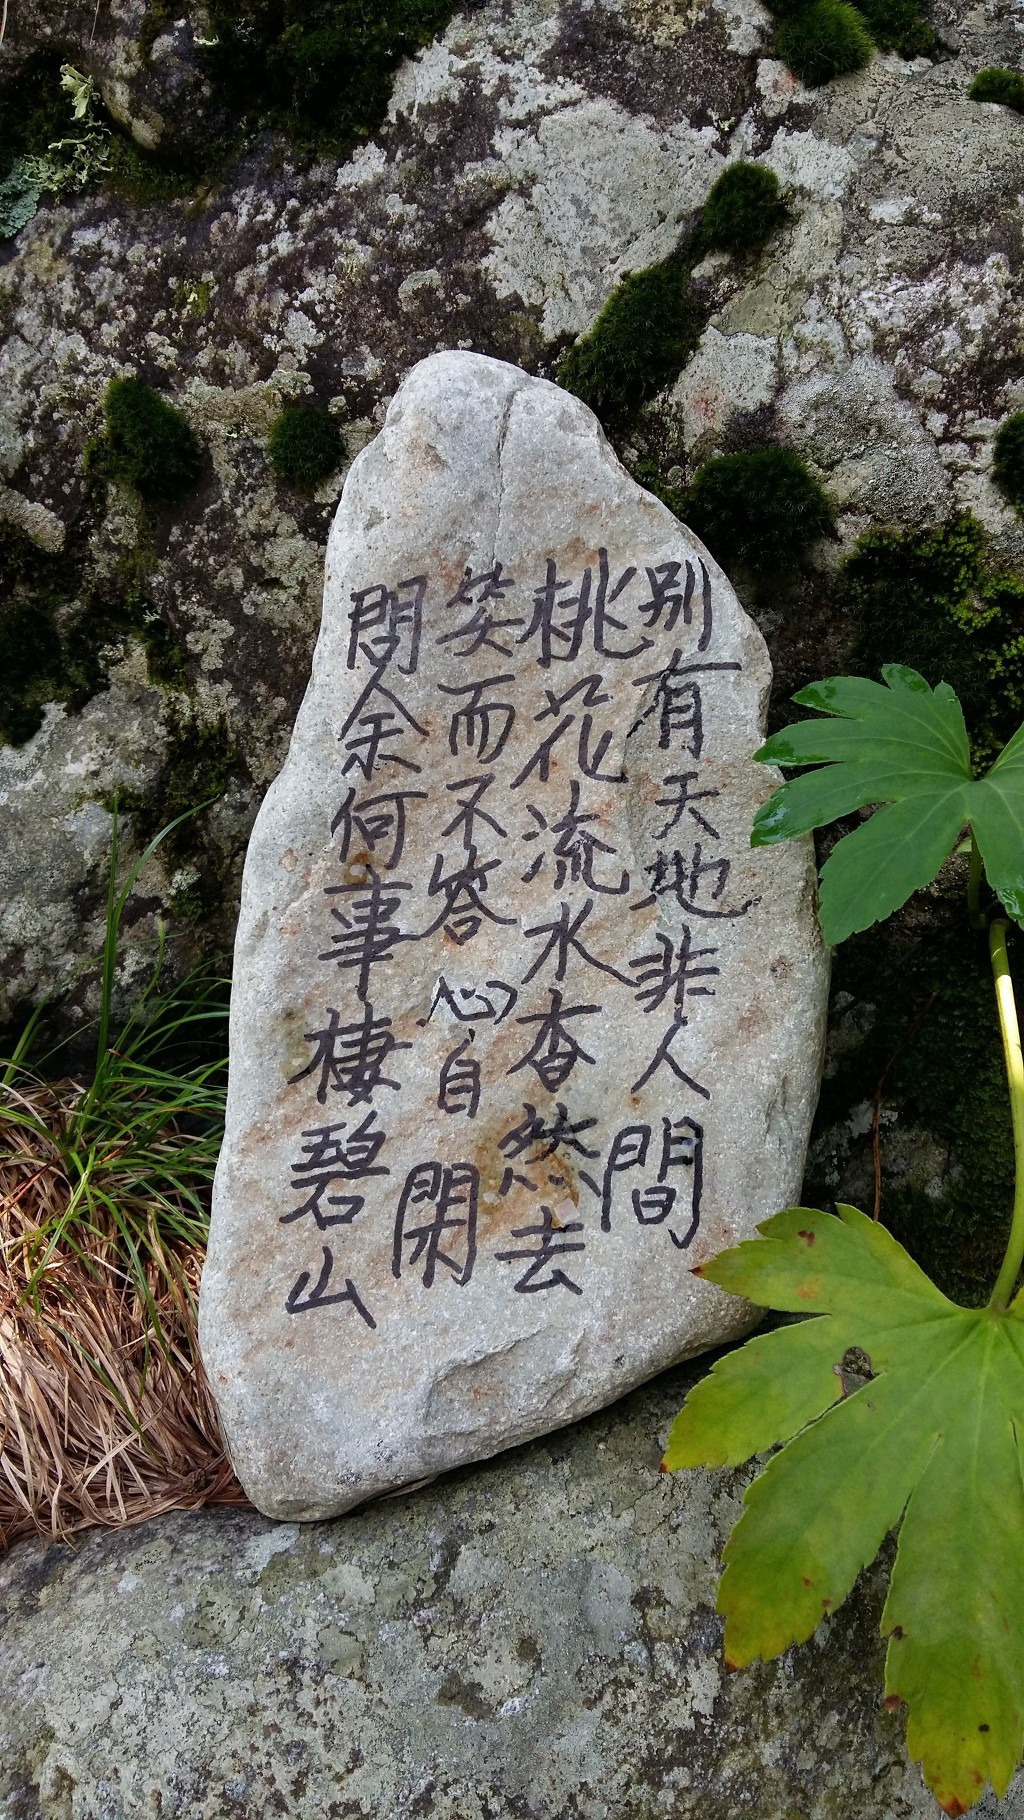 問余何事棲碧山
笑而不答心自閑
桃花流水杳然去
别有天地非人間